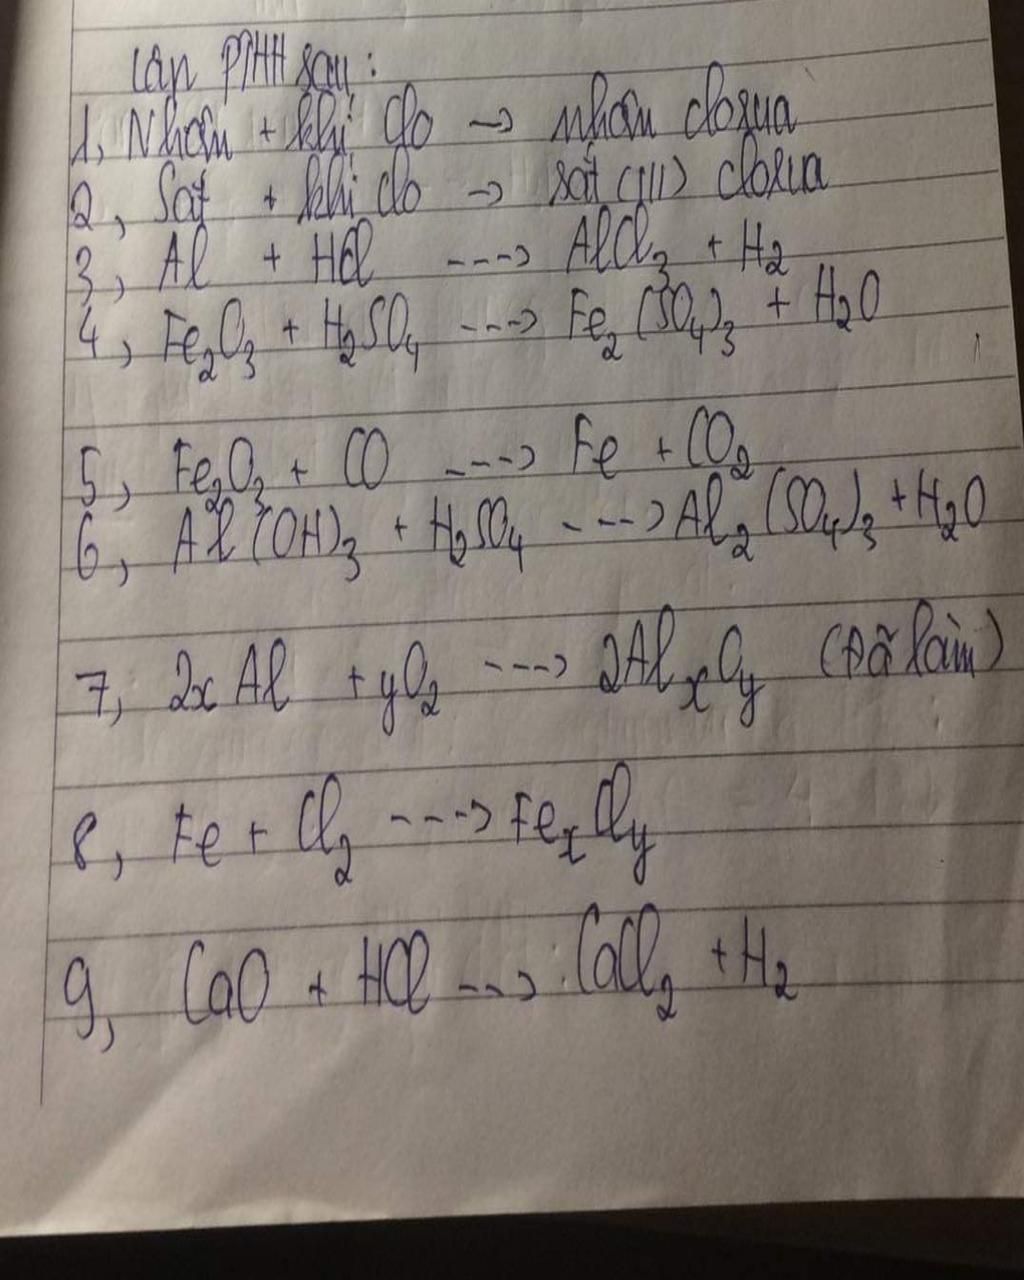 Cân PTHH sau:
1, Nhôm + khí Clo → nhôm clorua
2, Sắt + khí clo → sắt (III) clorua
3, Al + HCl ---> AlCl₃ + H₂
4, Fe₂O₃ + H₂SO₄ ---> Fe₂(SO₄)₃ + H₂O
5, Fe₂O₃ + CO ---> Fe + CO₂
6, Al(OH)₃ + H₂SO₄ ---> Al₂(SO₄)₃ + H₂O
7, 2x Al + yO₂ ---> 2AlₓOᵧ (Đã làm)
8, Fe + Cl₂ ---> FeₓClᵧ
9, CaO + HCl --> CaCl₂ + H₂